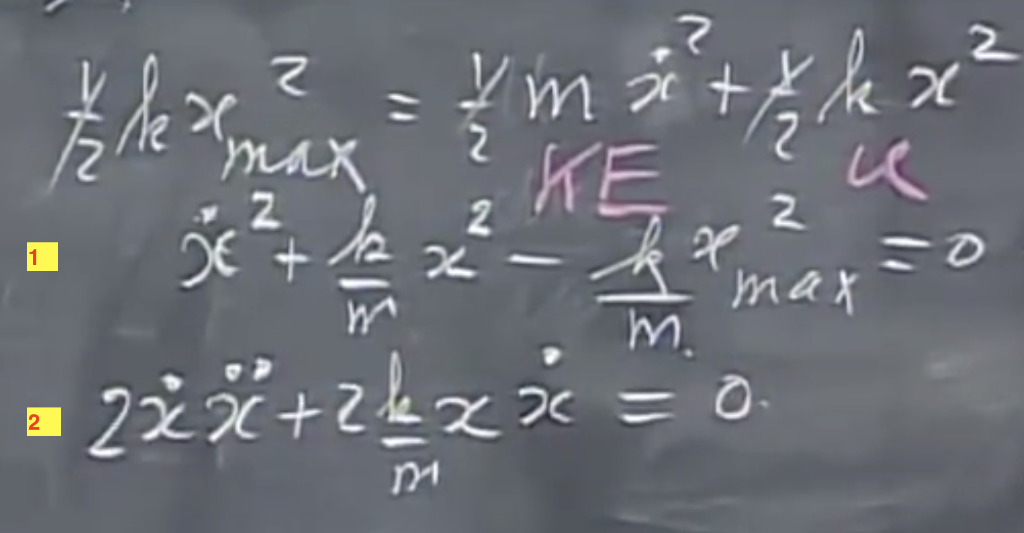 ½ k x²max = ½ m ẋ² + ½ k x²
KE U
1 ẋ² + k/m x² − k/m x²max = 0
2 2ẋẍ + 2 k/m x ẋ = 0.